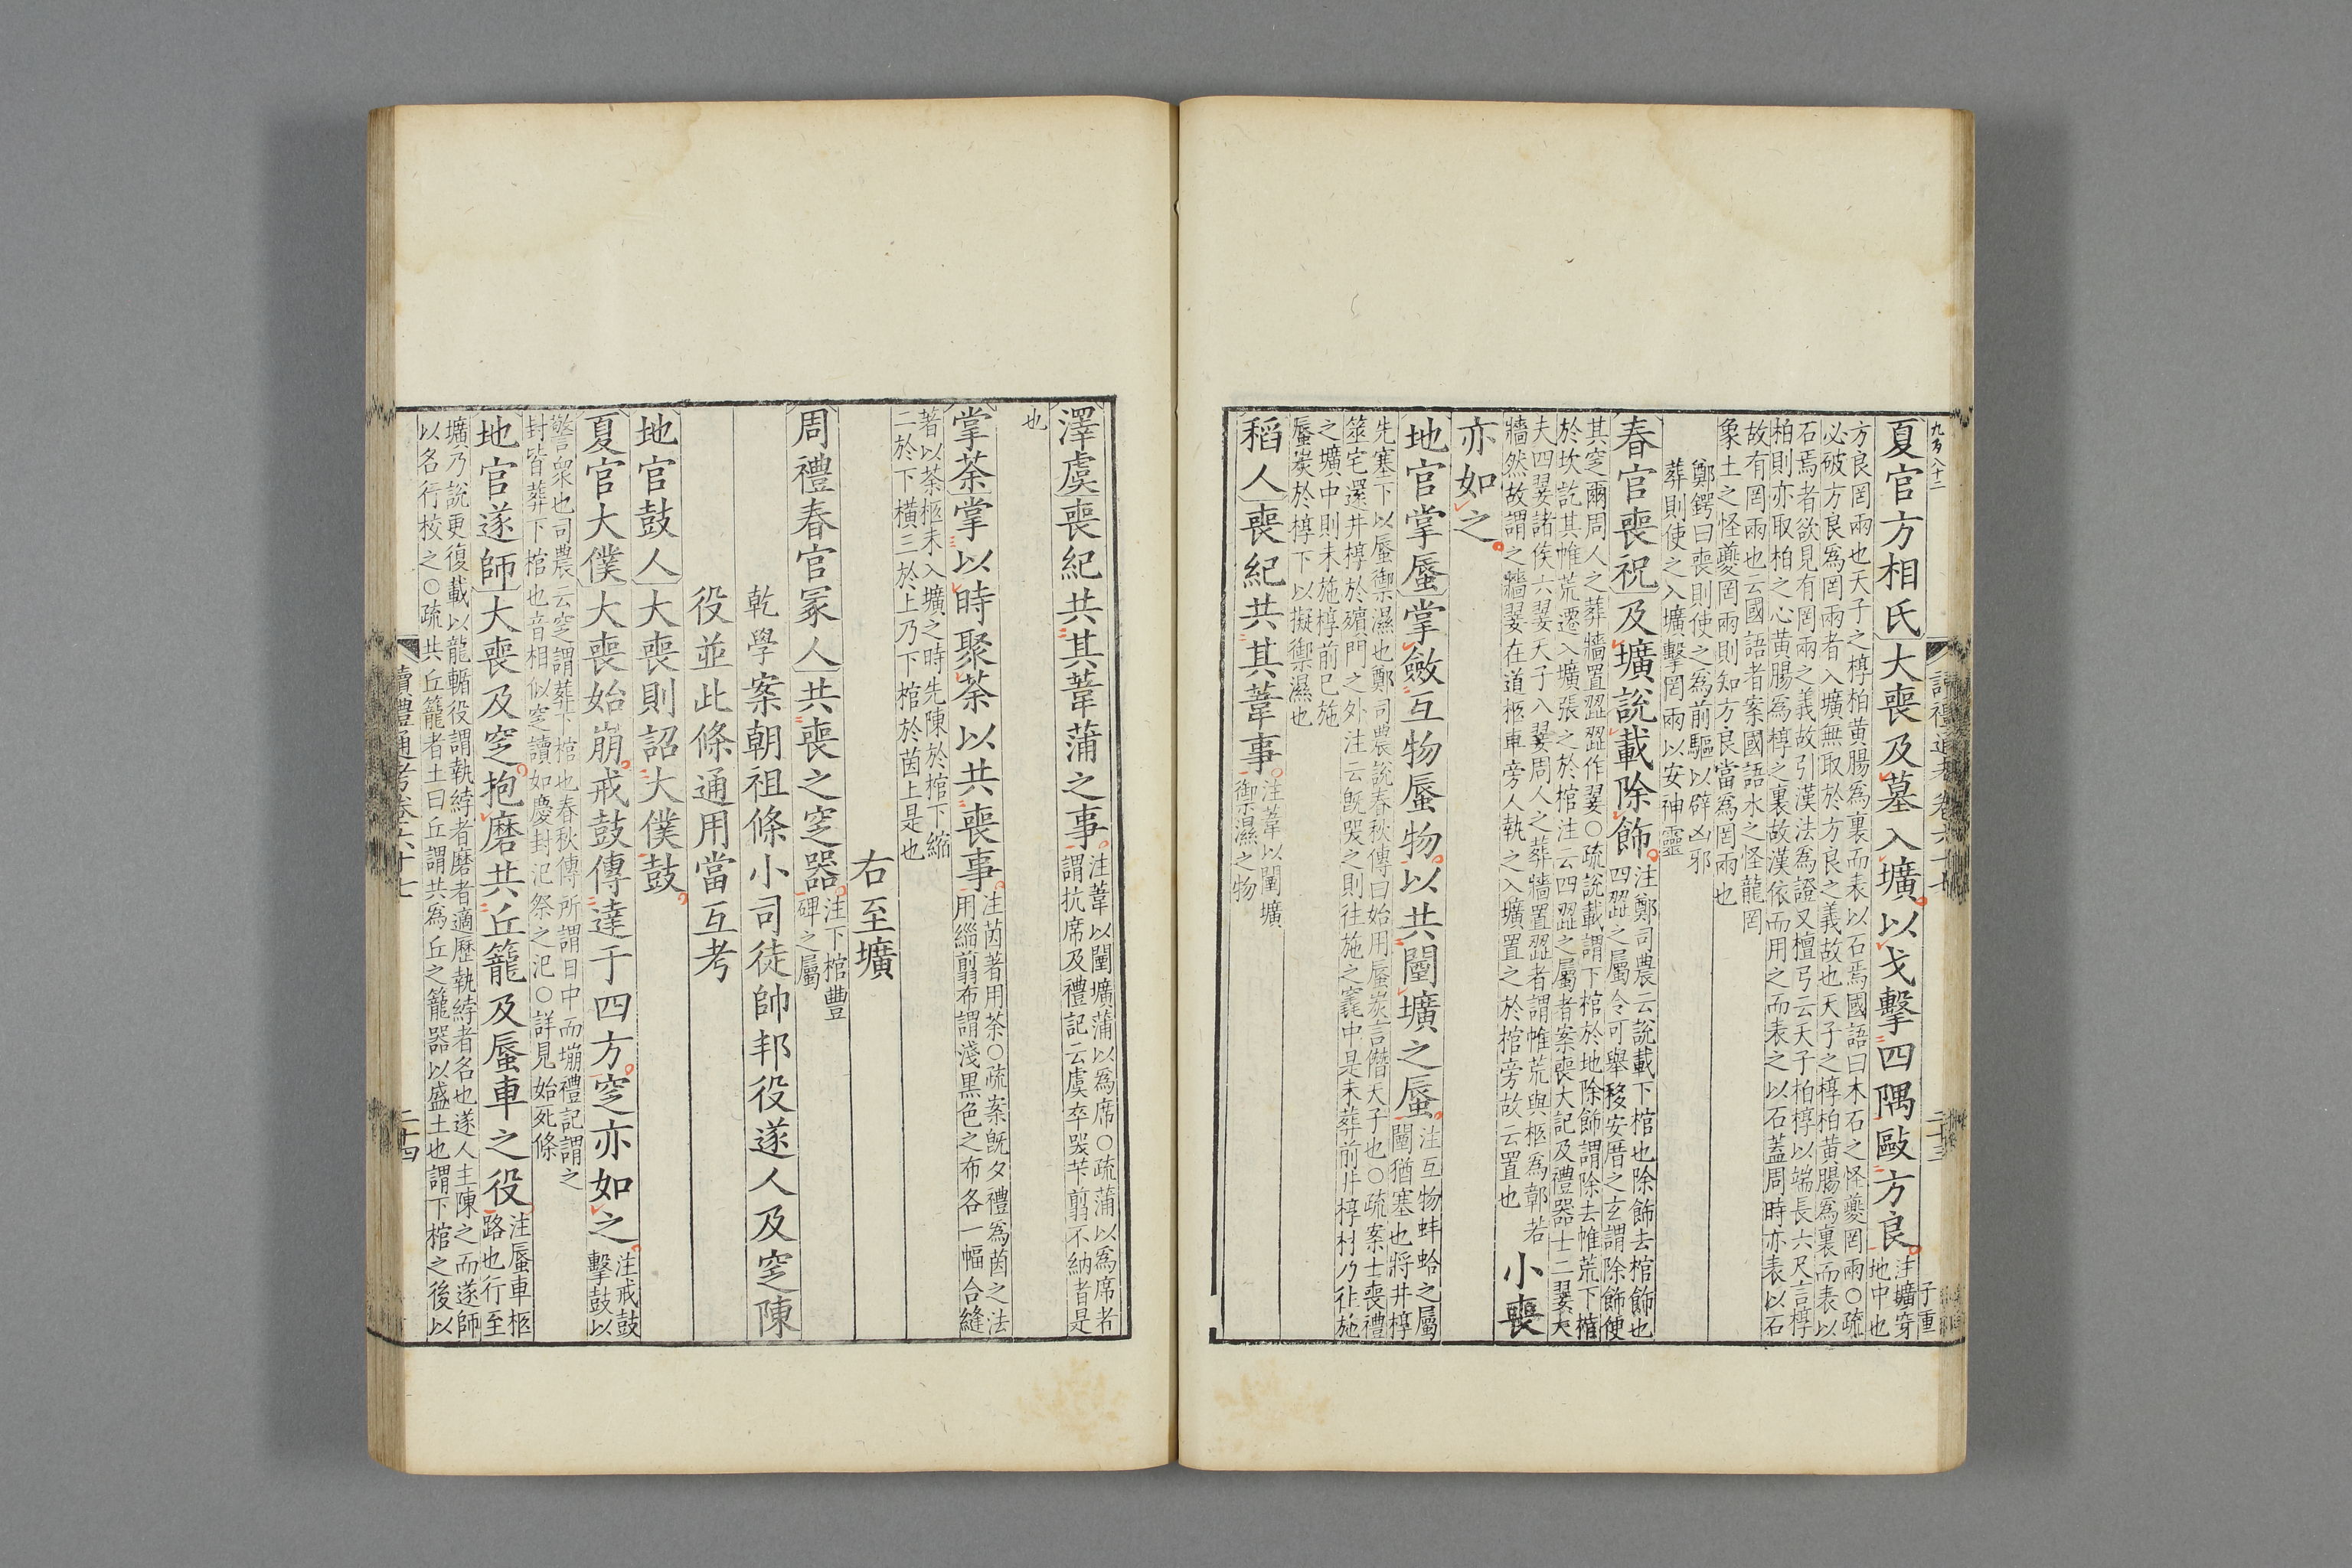 夏官方相氏大喪及墓入壙以戈擊四隅毆方良注壙穿
地中也
方良罔兩也天子之椁柏黃腸爲裏而表以石焉國語曰木石之怪夔罔兩○疏
必破方良爲罔兩者入壙無取於方良之義故也天子之椁柏黃腸爲裏而表以
石焉者欲見有罔兩之義故引漢法爲證又檀弓云天子柏椁以端長六尺言椁
柏則亦取柏之心黃腸爲椁之裏故漢依而用之而表之以石蓋周時亦表以石
故有罔兩也云國語者案國語水之怪龍罔
象土之怪夔罔兩則知方良當爲罔兩也
鄭鍔曰喪則使之爲前驅以辟凶邪
葬則使之入壙擊罔兩以安神靈
春官喪祝及壙說載除飾注鄭司農云說載下棺也除飾去棺飾也
四歰之屬令可舉移安厝之玄謂除飾便
其窆爾周人之葬牆置歰歰作翣○疏說載謂下棺於地除飾謂除去帷荒下棺
於坎訖其帷荒遷入壙張之於棺注云四歰之屬者案喪大記及禮器士二翣大
夫四翣諸侯六翣天子八翣周人之葬牆置歰者謂帷荒與柩爲鄣若
牆然故謂之牆翣在道柩車旁人執之入壙置之於棺旁故云置也
小喪
亦如之
地官掌蜃掌斂互物蜃物以共闉壙之蜃注互物蚌蛤之屬
闉猶塞也將井椁
先塞下以蜃禦濕也鄭司農說春秋傳曰始用蜃炭言僭天子也○疏案士喪禮
筮宅還井椁於殯門之外注云旣哭之則往施之竁中是未葬前井椁材乃往施
之壙中則未施椁前已施
蜃炭於椁下以擬禦濕也
稻人喪紀共其葦事注葦以闉壙
禦濕之物
澤虞喪紀共其葦蒲之事注葦以闉壙蒲以爲席○疏蒲以爲席者
謂抗席及禮記云虞卒哭芐翦不納者是
也
掌荼掌以時聚荼以共喪事注茵著用荼○疏案旣夕禮爲茵之法
用緇翦布謂淺黑色之布各一幅合縫
著以荼柩未入壙之時先陳於棺下縮
二於下橫三於上乃下棺於茵上是也
右至壙
周禮春官冢人共喪之窆器注下棺豐
碑之屬
乾學案朝祖條小司徒帥邦役遂人及窆陳
役並此條通用當互考
地官鼓人大喪則詔大僕鼓
夏官大僕大喪始崩戒鼓傳達于四方窆亦如之注戒鼓
擊鼓以
警衆也司農云窆謂葬下棺也春秋傳所謂日中而塴禮記謂之
封皆葬下棺也音相似窆讀如慶封氾祭之氾○詳見始死條
地官遂師大喪及窆抱磨共丘籠及蜃車之役注蜃車柩
路也行至
壙乃說更復載以龍輴役謂執綍者磨者適歷執綍者名也遂人主陳之而遂師
以名行校之○疏共丘籠者土曰丘謂共爲丘之籠器以盛土也謂下棺之後以
讀禮通考卷六十七
二十四